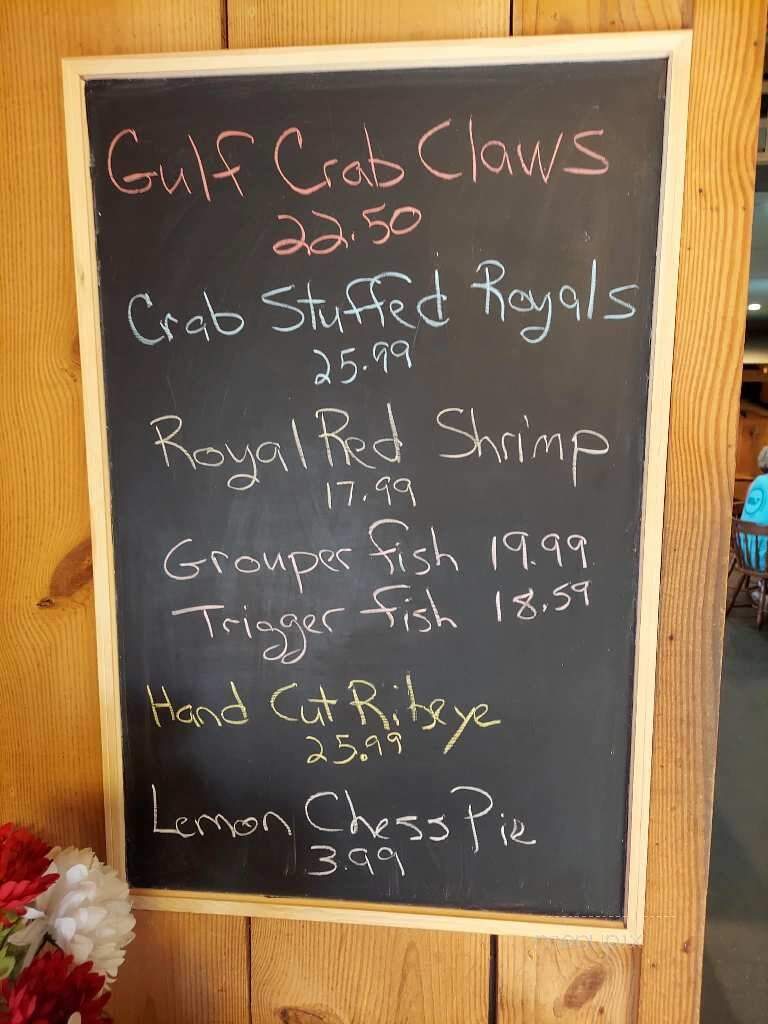 Gulf Crab Claws
22.50
Crab Stuffed Royals
25.99
Royal Red Shrimp
17.99
Grouper fish 19.99
Trigger fish 18.59
Hand Cut Ribeye
25.99
Lemon Chess Pie
3.99